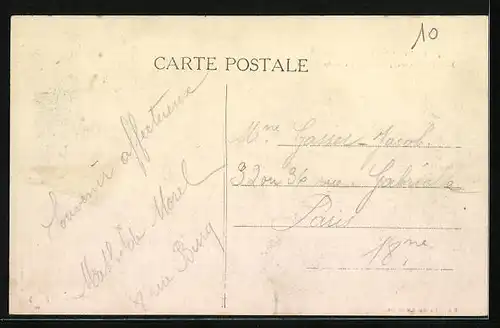 10
CARTE POSTALE
Souvenir affectueux
Mathilde Morel
8 rue
Mme Jacob
32 ou 36 rue Gabrielle
Paris
18me